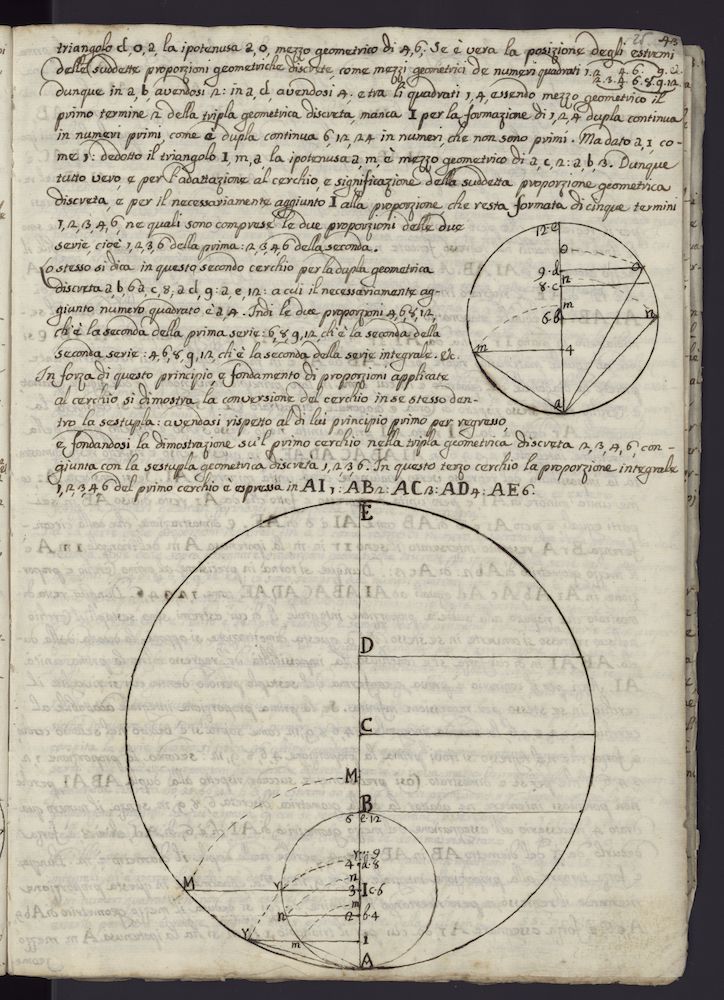 25 43
triangolo d, o, a la ipotenusa a, o, mezzo geometrico di 4, 6. Se è vera la posizione degli estremi
delle suddette proporzioni geometriche discrete, come mezzi geometrici de numeri quadrati 1. 2. 4. 6. 9. 12
2. 3. 4. 6. 8. 9. 12
dunque in a, b avendosi 2: in a, d avendosi 4, e tra li quadrati 1, 4, essendo mezzo geometrico il
primo termine 2 della tripla geometrica discreta, manca I per la formazione di 1, 2, 4 dupla continua
in numeri primi, come è dupla continua 6, 12, 24 in numeri che non sono primi. Ma dato a, 1, co-
me 1: dedotto il triangolo I, m, a, la ipotenusa a, m è mezzo geometrico di a, c, 2: a, b, 3. Dunque
tutto vero, e per l'adattazione al cerchio, e significazione della suddetta proporzione geometrica
discreta, e per il necessariamente aggiunto I alla proporzione che resta formata di cinque termini
1, 2, 3, 4, 6, ne quali sono comprese le due proporzioni delle due
serie, cioè 1, 2, 3, 6 della prima: 2, 3, 4, 6 della seconda.
Lo stesso si dica in questo secondo cerchio per la dupla geometrica
discreta a b, 6 a c, 8, a d, 9: a, e 12: a cui il necessariamente ag-
giunto numero quadrato è a, 4. Indi le due proporzioni 4, 6, 8, 12,
ch'è la seconda della prima serie: 6, 8, 9, 12, ch'è la seconda della
seconda serie: 4, 6, 8, 9, 12, ch'è la seconda della serie integrale. &c.
In forza di questo principio, e fondamento di proporzioni applicate
al cerchio si dimostra la conversione del cerchio in se stesso den-
tro la sestupla: avendasi rispetto al di lui principio primo per regresso,
e fondandosi la dimostrazione su'l primo cerchio nella tripla geometrica discreta 2, 3, 4, 6, con-
giunta con la sestupla geometrica discreta 1, 2, 3 6. In questo terzo cerchio la proporzione integrale
1, 2, 3, 4, 6 del primo cerchio è espressa in AI 1: AB 2: AC 3: AD 4: AE 6.
12. e
o
9. d
o
n
8. c
m
6. b
n
m
4
a
E
D
C
M
B
6 e. 12
r 9
4 d. 8
n
M
r
3 I c. 6
m
n
2 b. 4
r
m
1
A